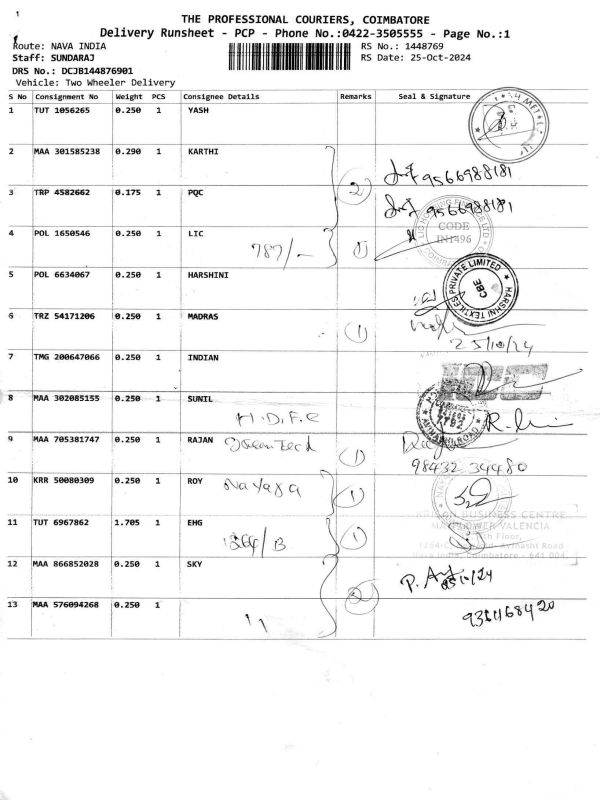 1
THE PROFESSIONAL COURIERS, COIMBATORE
Delivery Runsheet - PCP - Phone No.:0422-3505555 - Page No.:1
Route: NAVA INDIA
RS No.: 1448769
Staff: SUNDARAJ
RS Date: 25-Oct-2024
DRS No.: DCJB144876901
Vehicle: Two Wheeler Delivery
S No Consignment No Weight PCS Consignee Details Remarks Seal & Signature
1 TUT 1056265 0.250 1 YASH
2 MAA 301585238 0.290 1 KARTHI
9566988181
3 TRP 4582662 0.175 1 PQC 2
9566988181
4 POL 1650546 0.250 1 LIC
787/- 1
CODE
IN1496
5 POL 6634067 0.250 1 HARSHINI
HARSHNI TEXTILES PRIVATE LIMITED
CBE
6 TRZ 54171206 0.250 1 MADRAS 1
25/10/24
7 TMG 200647066 0.250 1 INDIAN
8 MAA 302085155 0.250 1 SUNIL
H.D.F.C
9 MAA 705381747 0.250 1 RAJAN 1
98432 34480
10 KRR 50080309 0.250 1 ROY Nayara 1
BUSINESS CENTRE
VALENCIA
11 TUT 6967862 1.705 1 EHG 1
Floor,
Avinashi Road
Coimbatore - 641 004
12 MAA 866852028 0.250 1 SKY
2
13 MAA 576094268 0.250 1